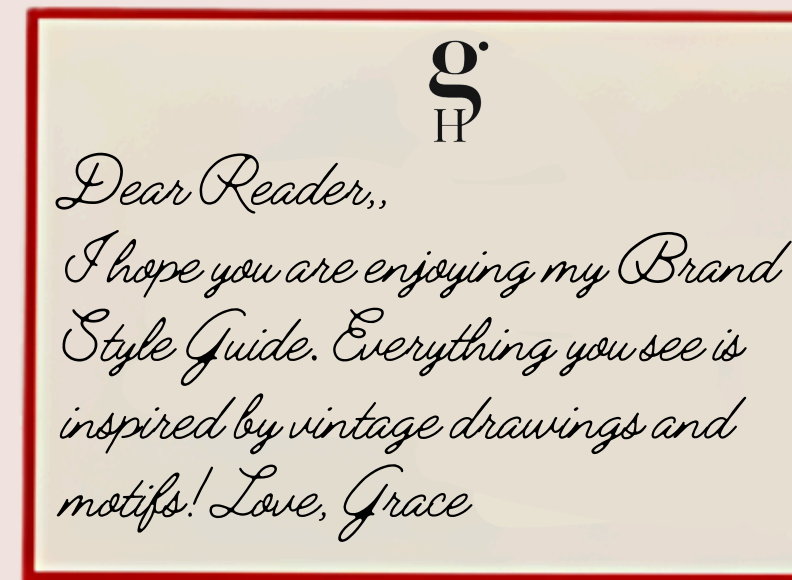 g
H
Dear Reader,,
I hope you are enjoying my Brand
Style Guide. Everything you see is
inspired by vintage drawings and
motifs! Love, Grace